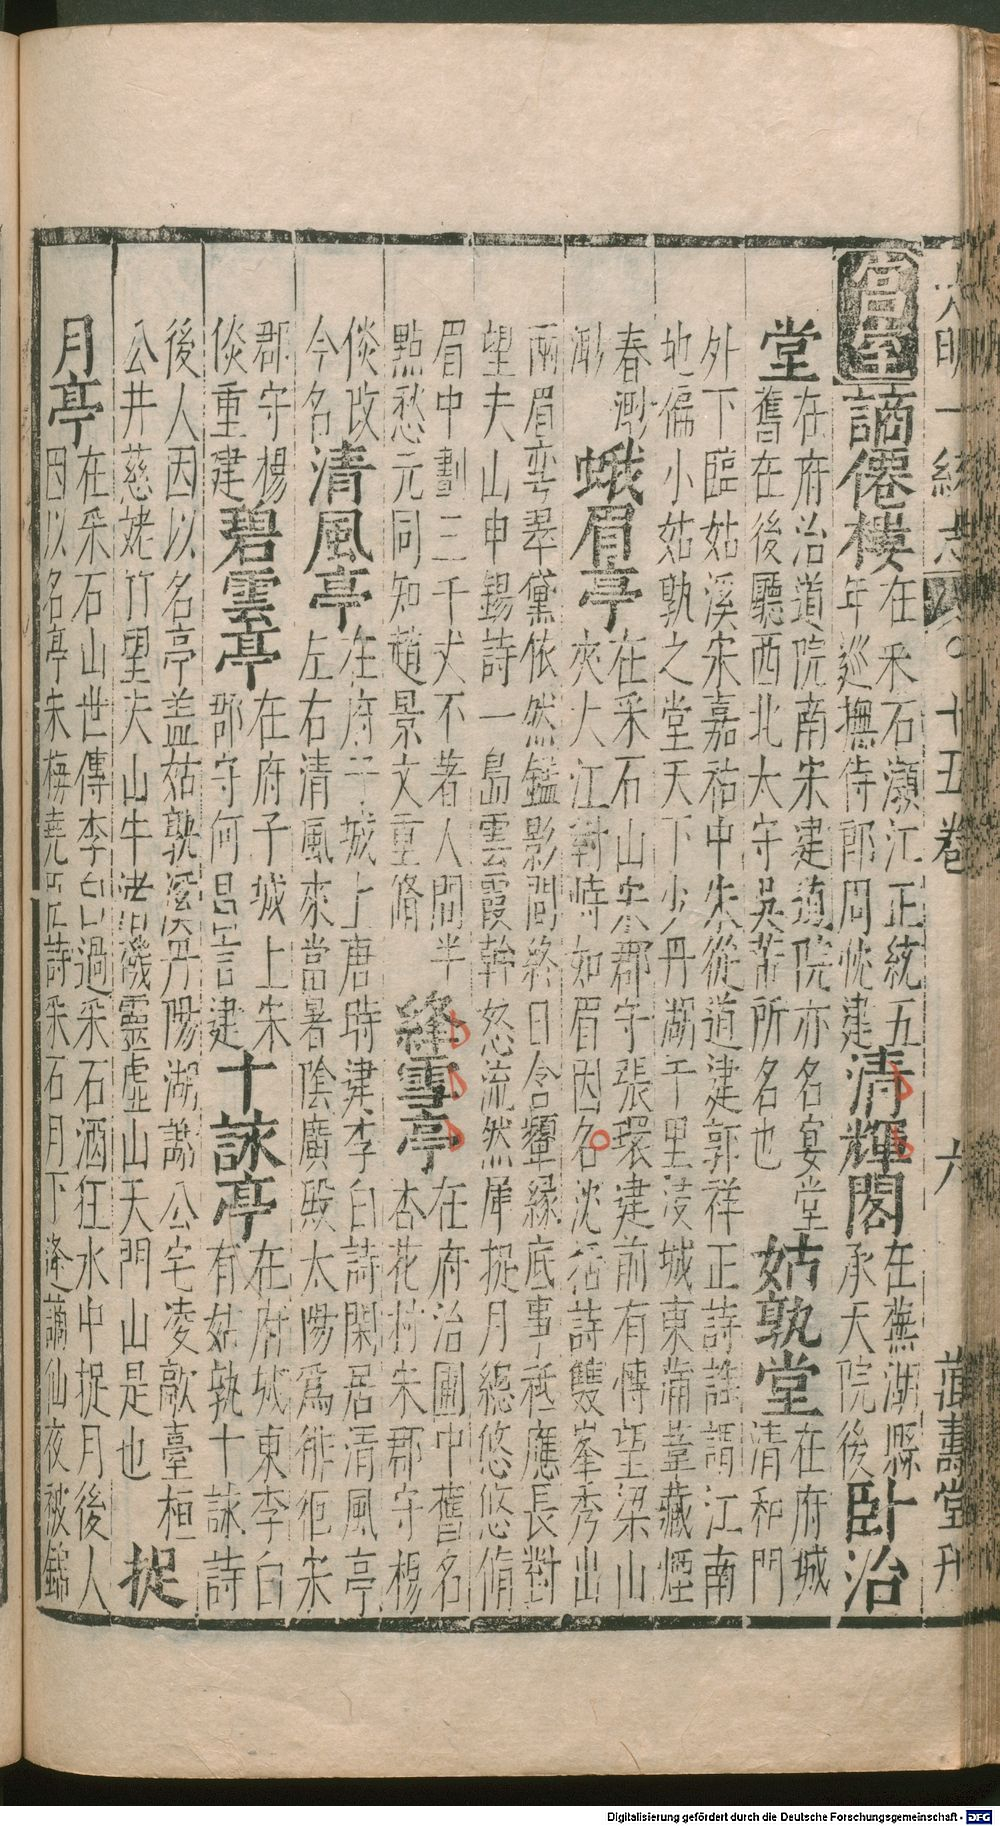 大明一統志 十五卷 六 萬壽堂刊
宮室 謫僊樓 在采石瀕江正統五
年巡撫侍郎周忱建 清輝閣 在蕪湖縣
承天院後 卧治
堂 在府治道院南宋建道院亦名宴堂
舊在後聽西北太守吳芾所名也 姑孰堂 在府城
清和門
外下臨姑溪宋嘉祐中朱從道建郭祥正詩誰謂江南
地偏小姑孰之堂天下少丹湖千里浸城東蒲薹藏煙
春渺
渺 蛾眉亭 在采石山宋郡守張瓌建前有博望梁山
夾大江對峙如眉因名沈括詩雙峯秀出
兩眉彎翠黛依然鑑影間終日含顰緣底事秪應長對
望夫山申錫詩一島雲霞幹怒流然犀捉月總悠悠脩
眉中劃三千丈不著人間半
點愁元同知趙景文重脩 絳雪亭 在府治圃中舊名
杏花村朱郡守楊
倓改
今名 清風亭 在府子城上唐時建李白詩閑居清風亭
左右清風來當暑陰廣殿太陽爲徘徊宋
郡守楊
倓重建 碧雲亭 在府子城上朱
郡守何昌言建 十詠亭 在府城東李白
有姑孰十詠詩
後人因以名亭盖姑孰溪丹陽湖謝公宅凌歊臺桓
公井慈姥竹望夫山牛渚磯靈虛山天門山是也 捉
月亭 在采石山世傳李白過采石酒狂水中捉月後人
因以名亭朱梅堯臣詩采石月下逢謫仙夜披錦
Digitalisierung gefördert durch die Deutsche Forschungsgemeinschaft - DFG